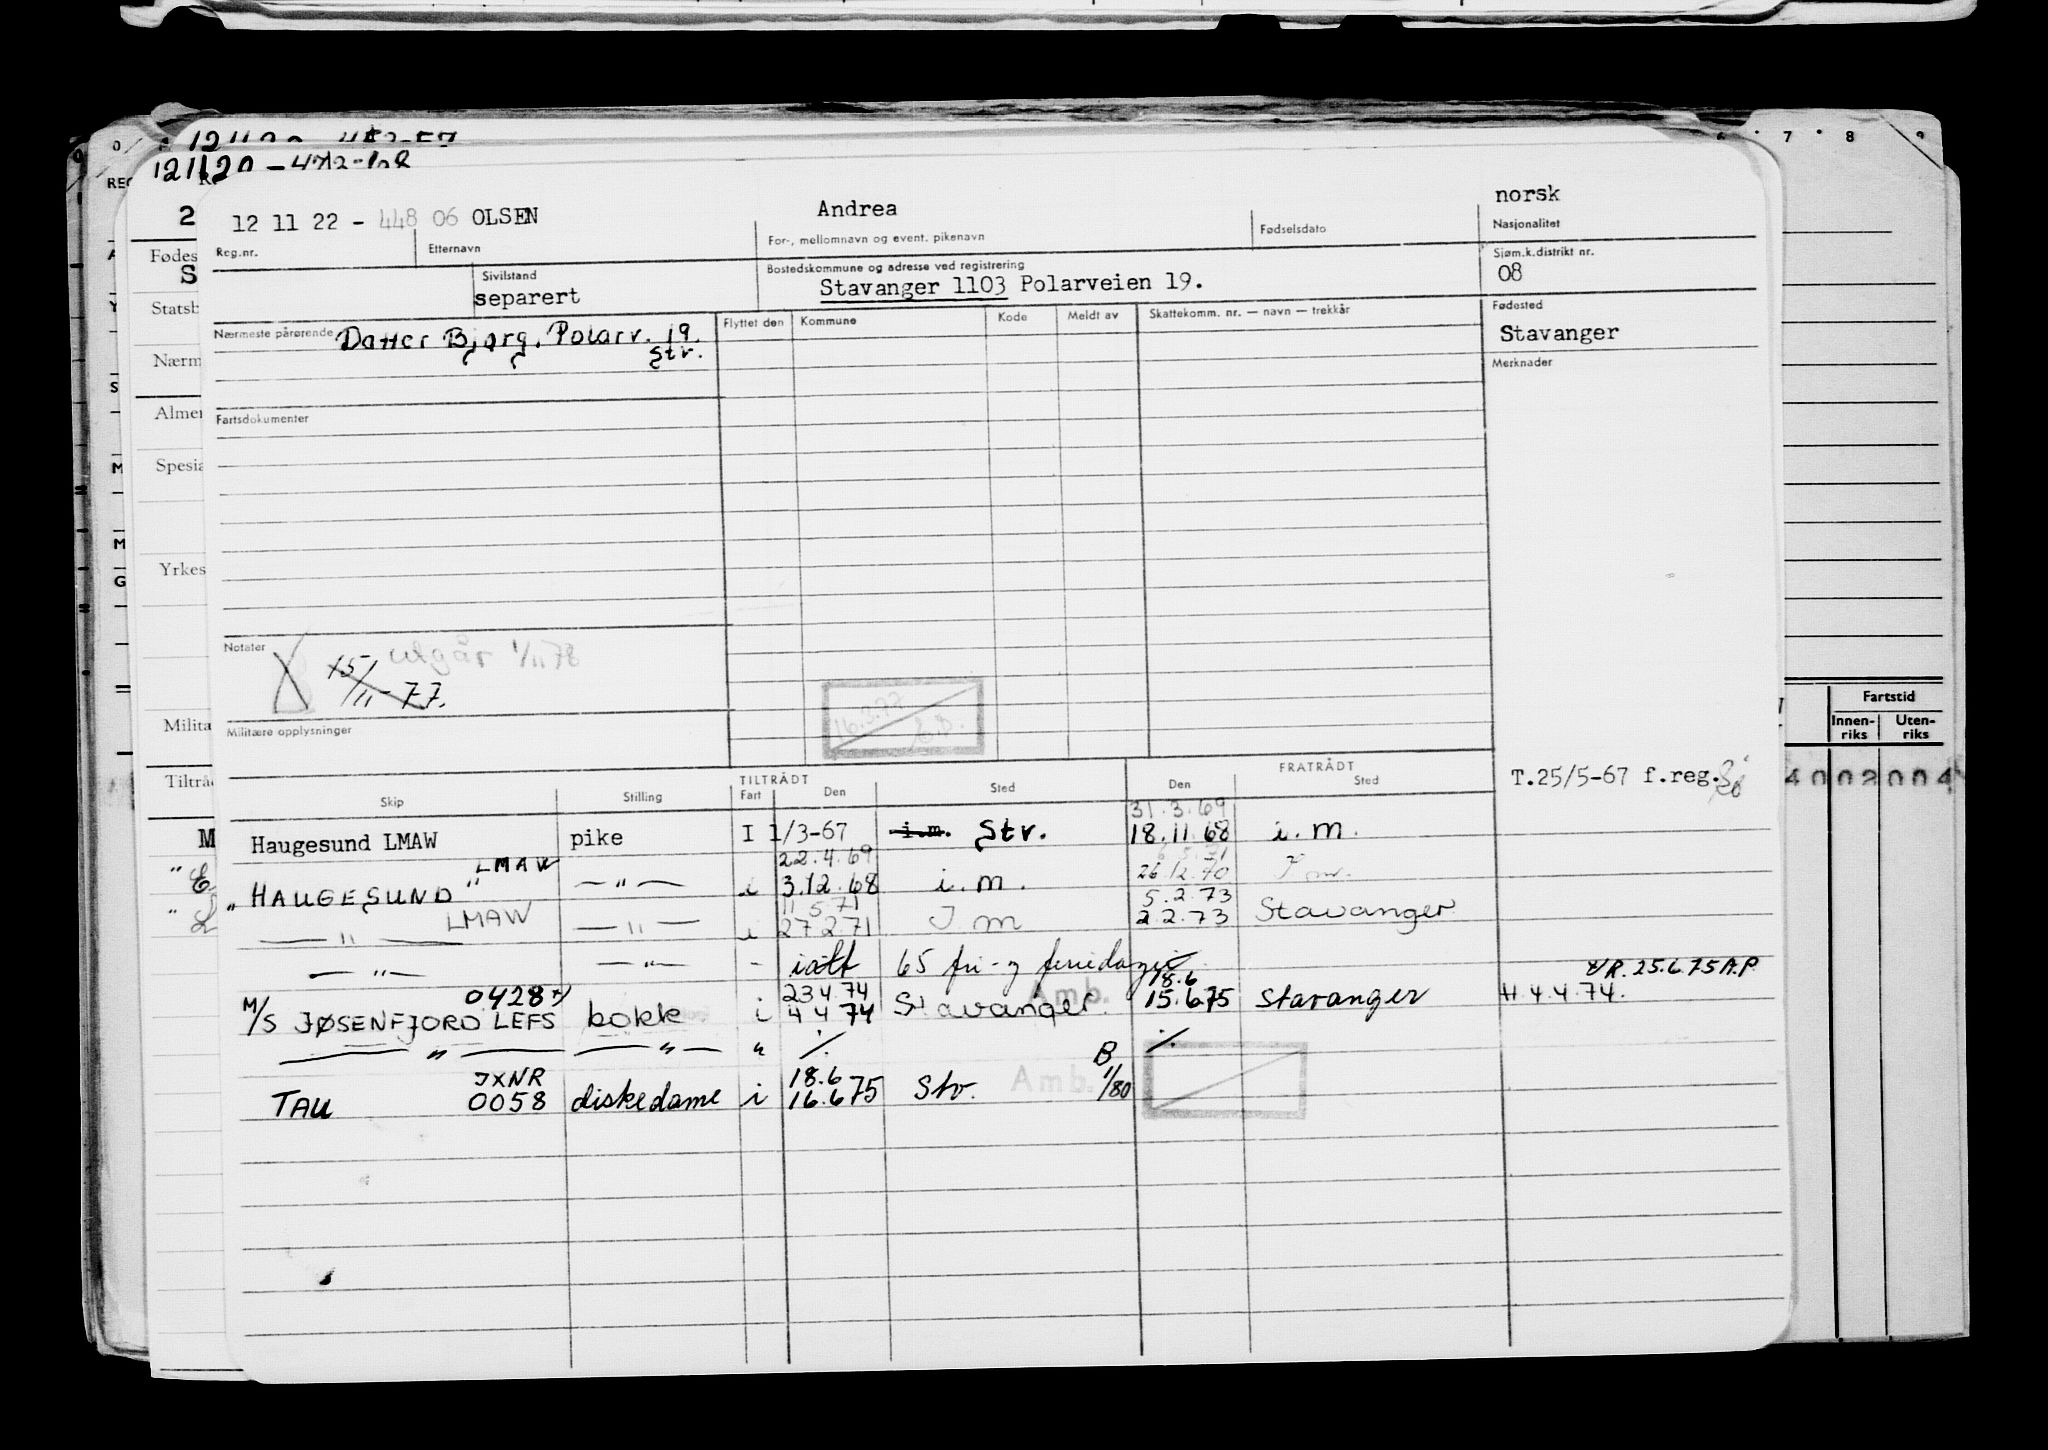 121120 -
6 7 8 9
REG
12 11 22 - 448 06 OLSEN Andrea norsk
Reg.nr. Etternavn For-, mellomnavn og event. pikenavn Fødselsdato Nasjonalitet
Sivilstand Bostedskommune og adresse ved registrering Sjøm.k.distrikt nr.
separert Stavanger 1103 Polarveien 19. 08
Nærmeste pårørende Datter Bjørg, Polarv. 19. Flyttet den Kommune Kode Meldt av Skattekomm. nr. — navn — trekkår Fødested
Stv. Stavanger
Merknader
Fartsdokumenter
Notater utgår 1/11 78
15/11-77.
16.3.77
Militære opplysninger
Fartstid
Innen-riks Uten-riks
4 0 0 2 0 0 4
TILTRÅDT FRATRÅDT
Skip Stilling Fart Den Sted Den Sted
T.25/5-67 f.reg.
31.3.69
Haugesund LMAW pike I 1/3-67 i.m. Stv. 18.11.68 i.m.
LMAW 22.4.69
" HAUGESUND " — " — i 3.12.68 i.m. 26.12.70
LMAW 11.5.71 5.2.73
— " — — " — i 27.2.71 I m 2.2.73 Stavanger
— " — — " — - iatt 65 fri- og feriedager
0428 23 4 74 18.6 R. 25.6.75 A.P
M/S JØSENFJORD LEFS kokk i 4 4 74 Stavanger. Amb. 15.6.75 Stavanger H. 4.4.74.
— " — — " — " ./. ./.
JXNR 18.6 B
TAU 0058 diskedame i 16.6.75 Stv. Amb. 1/80